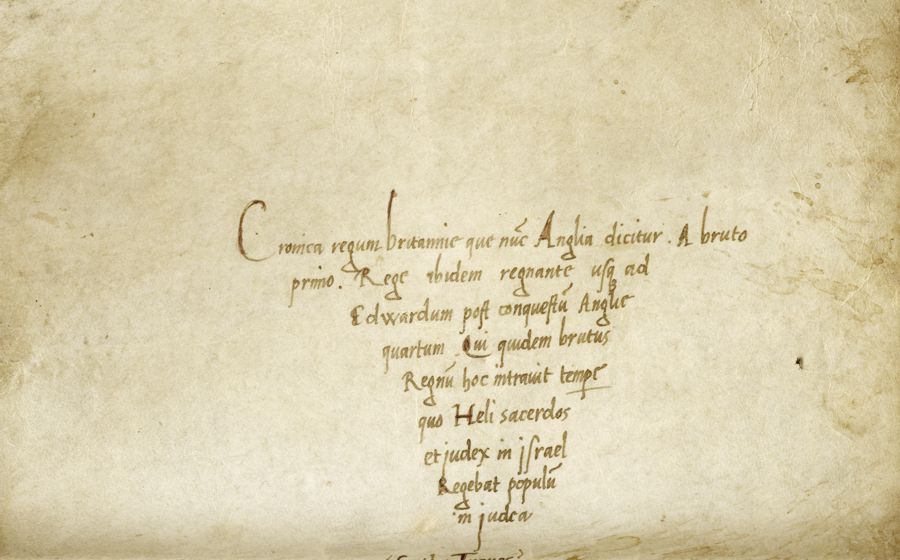 Cronica regum britannie que nūc Anglia dicitur. A bruto
primo. Rege ibidem regnante usq ad
Edwardum post conquestū Anglie
quartum. Qui quidem brutus
Regnū hoc intravit tempe
quo Heli sacerdos
et judex in jsrael
Regebat populū
in judea